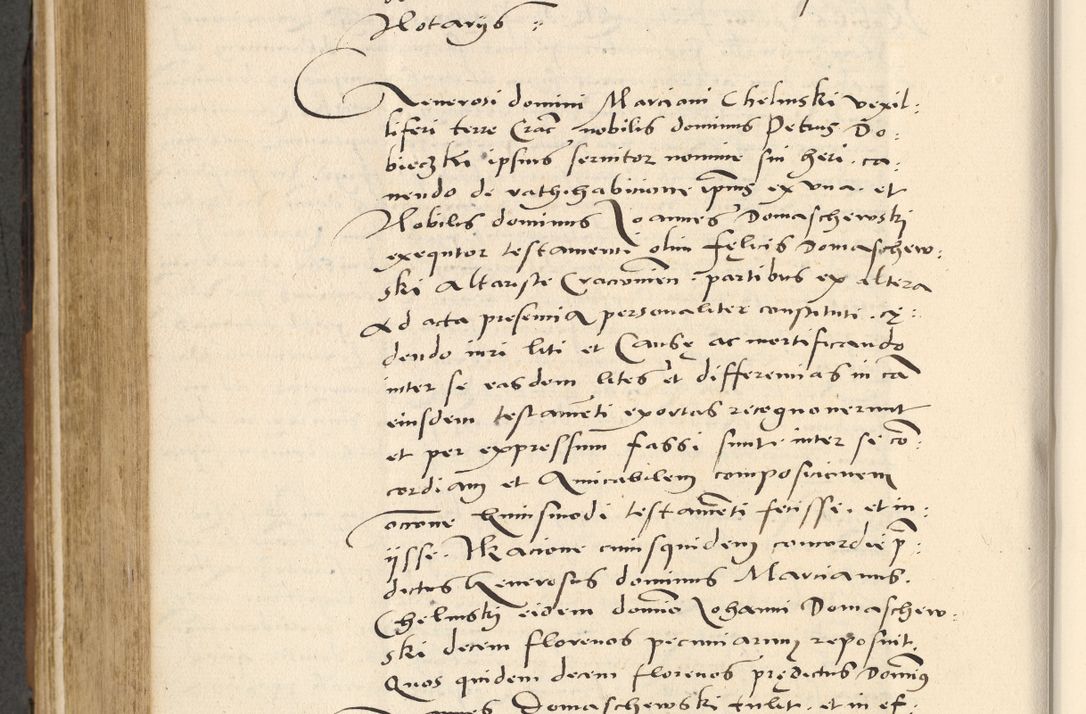 Notarijs :
Generosi domini Marciani Chelmski vexil:
liferi terre Crac nobilis dominus Petrus Do:
bieczki ipsius servitor nomine sui heri. ca:
nendo de rathihabitione ipsius ex una. et
Nobilis dominus Joannes Domaschewski
exequtor testamenti olim fęlicis Domaschew:
ski Altariste Cracovien. partibus ex altera
Ad acta presentia personaliter constituti. cę:
dendo iuri liti et Causę ac mortificando
inter se easdem lites et differentias in ca
eiusdem testamēti exortas recognoverunt
et per expressum fassi sunt. inter se cō:
cordiam et Amicabilem compositionem
occōne huiusmodi testamēti fecisse. et in:
ijsse. Racione cuiusquidem concordie p:
dictus Generosus dominus Marcianus.
Chelmski eidem domino Johanni Domaschew:
ski decem florenos pecuniarum reposuit.
Quos quidem decem florenos prędictus Dominus
Joannes Domaschewski tulit. et in ef: